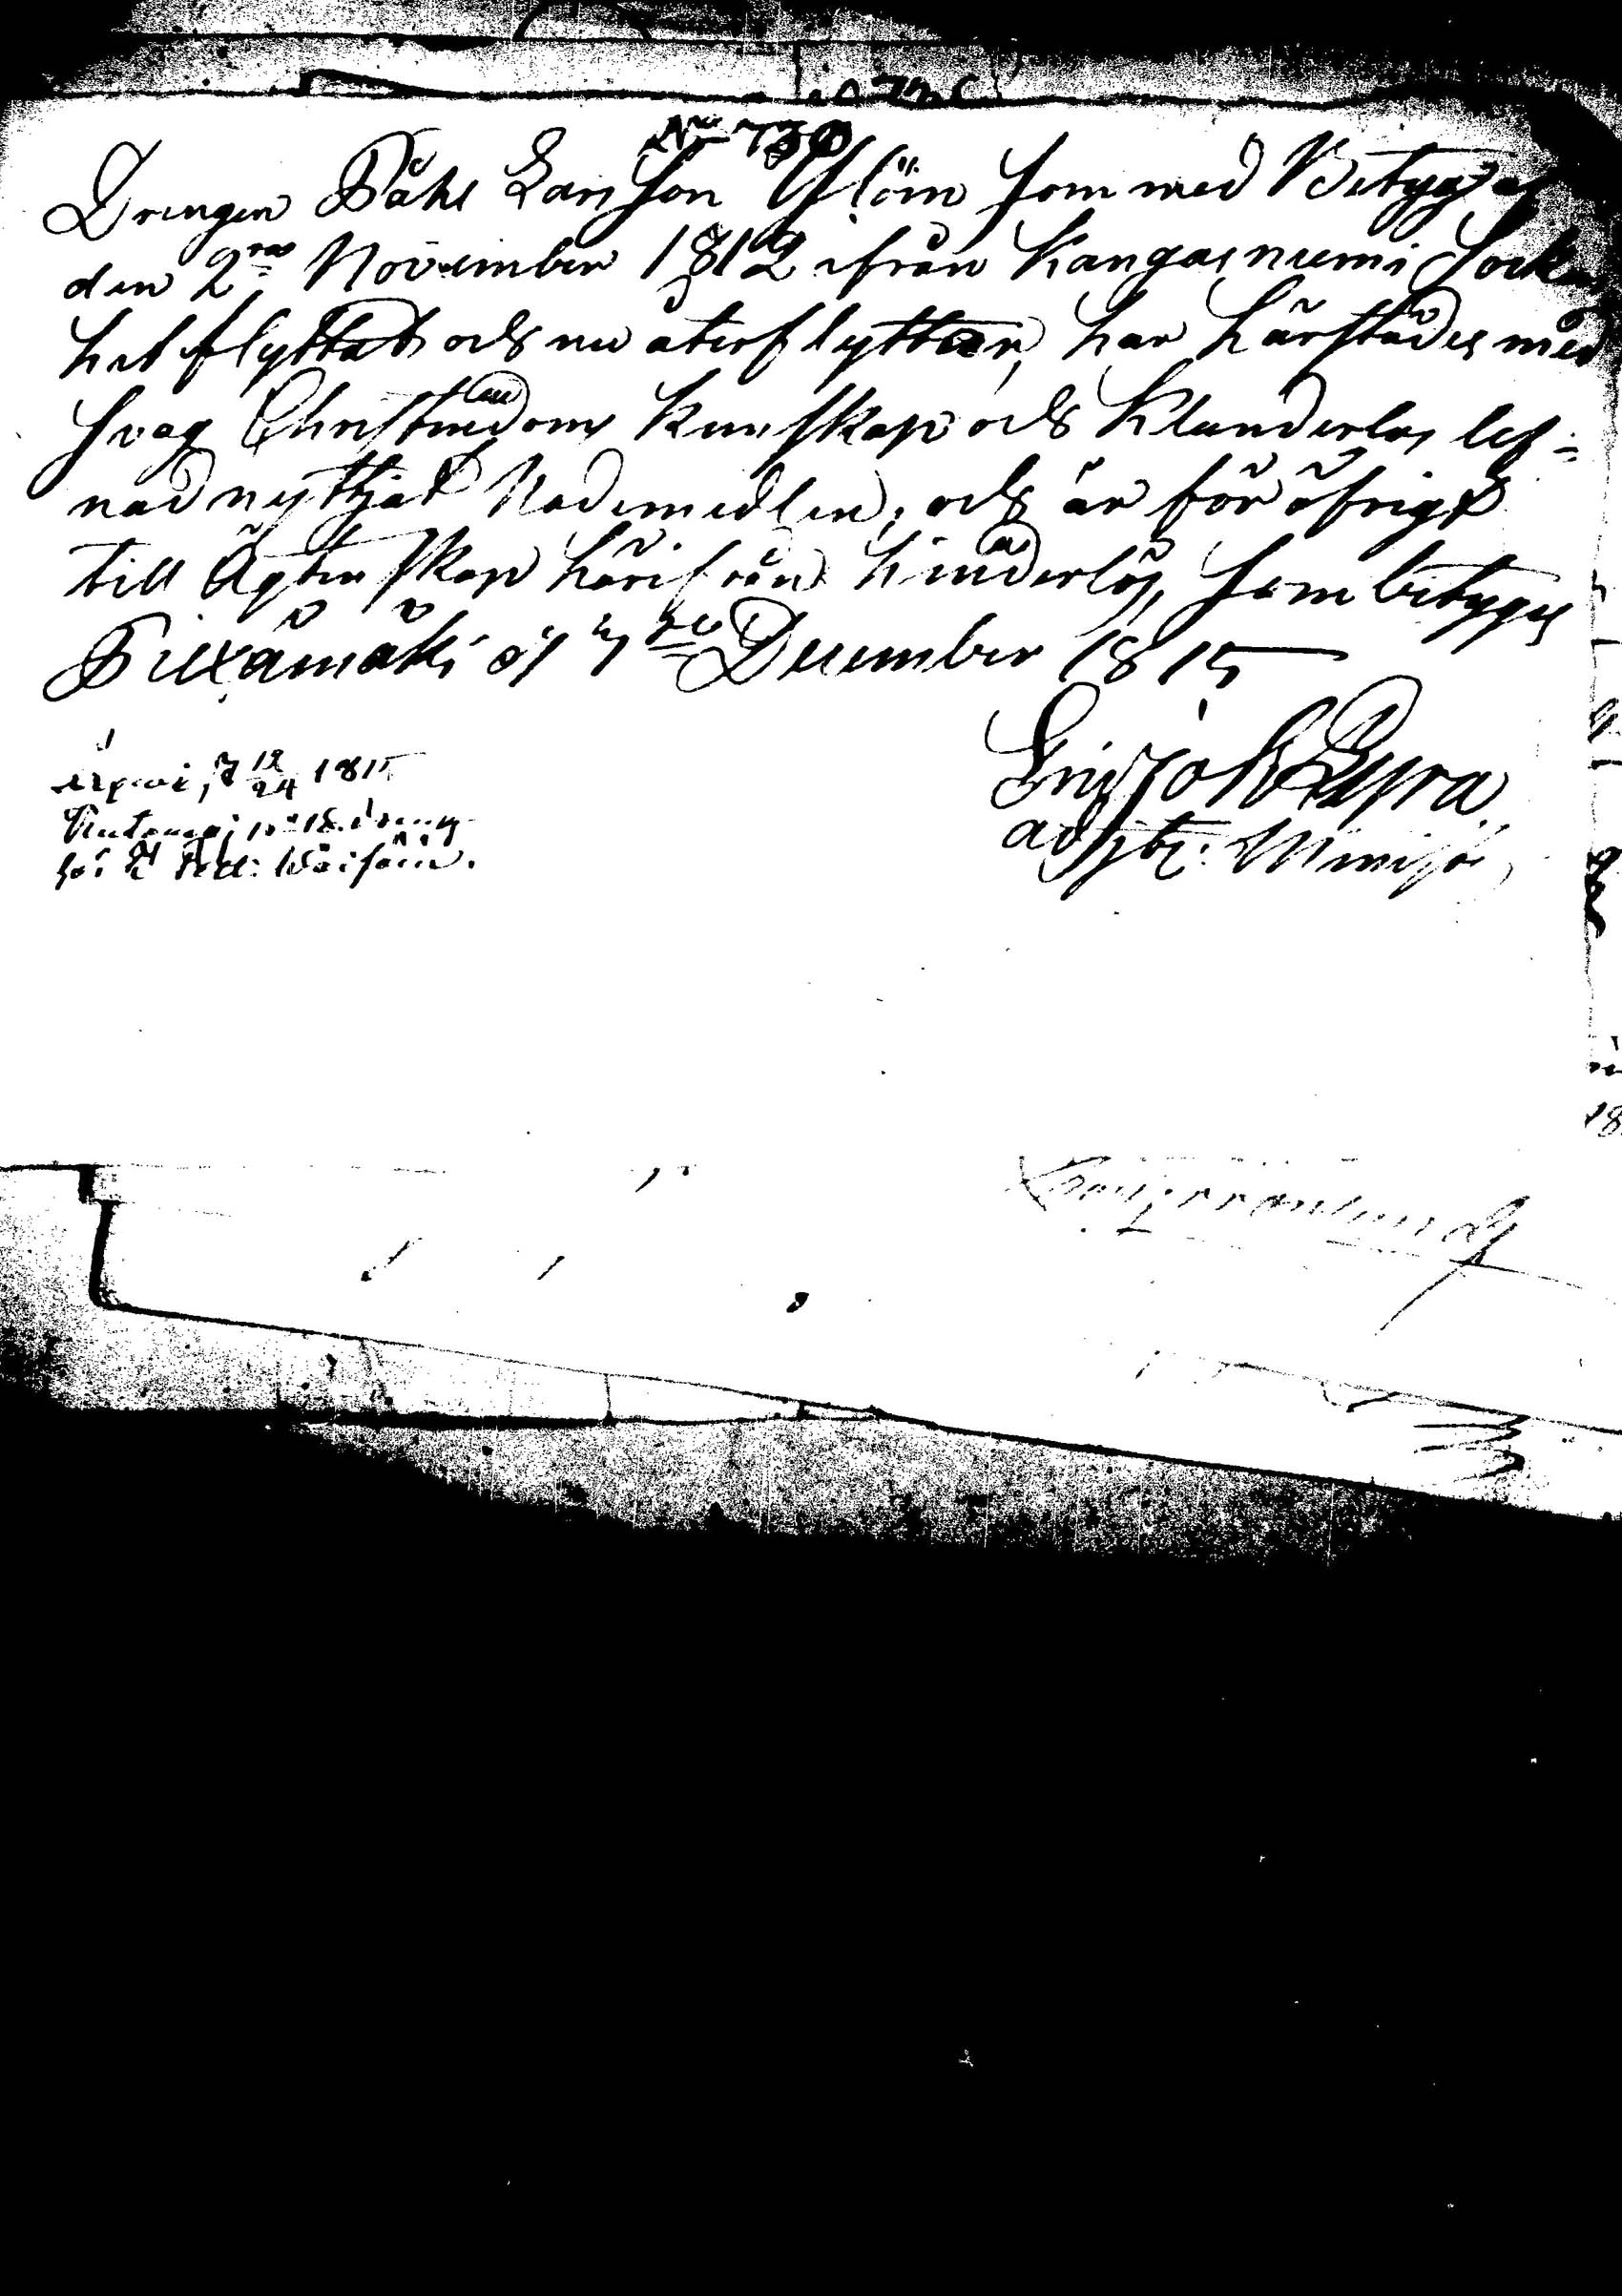 No 730
Drengen Påhl Larsson Ylöin som med Betyg af
den 2dra November 1812 ifrån Kangasniemi Sockn
hit flyttat och nu återflyttar, har härstädes med
svag Christendoms kunskap och klanderlös lef-
nad nyttjat Nademedlen; och är för öfrigt
till Ägtenskap härifrån hinderlös, som betygas
Piexämäki d. 7de December 1815
Adjt: Minist:
1815